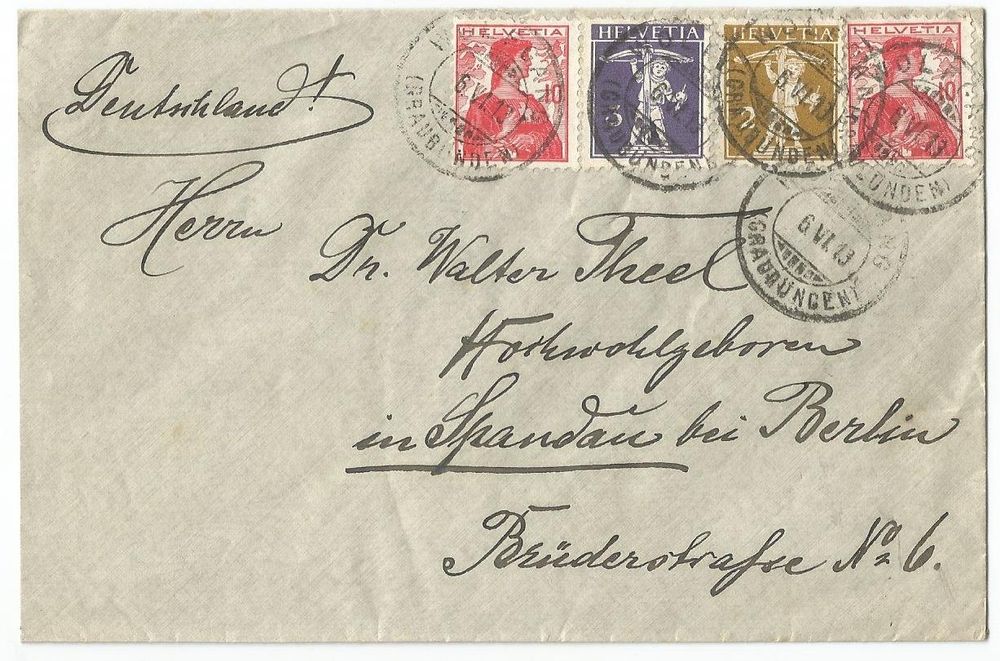 HELVETIA 10 HELVETIA 3 HELVETIA 2 HELVETIA 10
6.VI.13 (GRAUBÜNDEN)
6.VI.13 (GRAUBÜNDEN)
Deutschland!
Herrn
Dr. Walter Theel
Hochwohlgeboren
in Spandau bei Berlin
Brüderstrasse No 6.